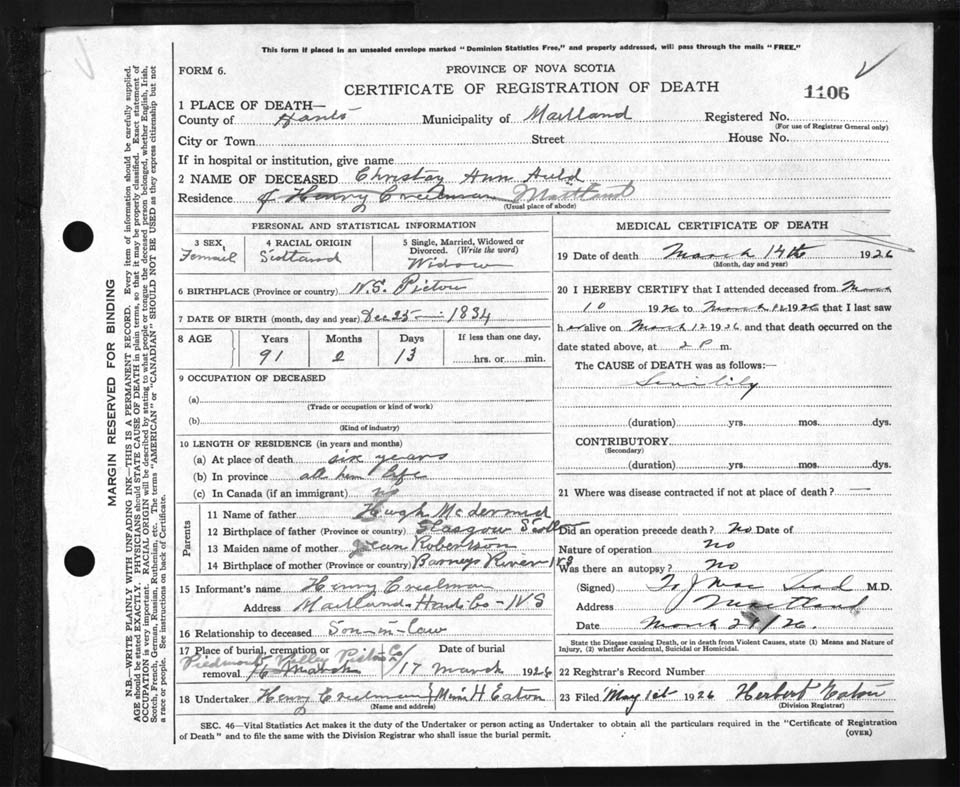 This form if placed in an unsealed envelope marked "Dominion Statistics Free," and properly addressed, will pass through the mails "FREE."
FORM 6.
PROVINCE OF NOVA SCOTIA
CERTIFICATE OF REGISTRATION OF DEATH
1106
1 PLACE OF DEATH—
County of Hants Municipality of Maitland Registered No.
(For use of Registrar General only)
City or Town Street House No.
If in hospital or institution, give name
2 NAME OF DECEASED Christy Ann Auld
Residence of Henry Creelman Maitland
(Usual place of abode)
PERSONAL AND STATISTICAL INFORMATION
3 SEX 4 RACIAL ORIGIN 5 Single, Married, Widowed or Divorced. (Write the word)
Femail Scotland Widow
6 BIRTHPLACE (Province or country) N.S. Pictou
7 DATE OF BIRTH (month, day and year) Dec 25 1834
8 AGE Years Months Days If less than one day,
91 2 13 hrs. or min.
9 OCCUPATION OF DECEASED
(a)
(Trade or occupation or kind of work)
(b)
(Kind of industry)
10 LENGTH OF RESIDENCE (in years and months)
(a) At place of death six years
(b) In province all her life
(c) In Canada (if an immigrant)
Parents
11 Name of father Hugh McDermid
12 Birthplace of father (Province or country) Glasgow Scotland
13 Maiden name of mother Jean Robertson
14 Birthplace of mother (Province or country) Barneys River NS
15 Informant's name Henry Creelman
Address Maitland Hants Co - NS
16 Relationship to deceased Son-in-law
17 Place of burial, cremation or removal Piedmont Valley Pictou Co Date of burial
16 March 17 March 1926
18 Undertaker Henry Creelman / H Eaton
(Name and address)
MEDICAL CERTIFICATE OF DEATH
19 Date of death March 14th 1926
(Month, day and year)
20 I HEREBY CERTIFY that I attended deceased from March
10 1926 to March 12 1926 that I last saw
her alive on March 12 1926 and that death occurred on the
date stated above, at 2 P m.
The CAUSE OF DEATH was as follows:—
Senility
(duration) yrs. mos. dys.
CONTRIBUTORY
(Secondary)
(duration) yrs. mos. dys.
21 Where was disease contracted if not at place of death? —
Did an operation precede death? No Date of
Nature of operation No
Was there an autopsy? No
(Signed) M.D.
Address Maitland
Date March 29/26.
State the Disease causing Death, or in death from Violent Causes, state (1) Means and Nature of Injury, (2) whether Accidental, Suicidal or Homicidal.
22 Registrar's Record Number
23 Filed May 1st 1926 Herbert Eaton
(Division Registrar)
SEC. 46—Vital Statistics Act makes it the duty of the Undertaker or person acting as Undertaker to obtain all the particulars required in the "Certificate of Registration
of Death" and to file the same with the Division Registrar who shall issue the burial permit.
(OVER)
MARGIN RESERVED FOR BINDING
N.B.—WRITE PLAINLY WITH UNFADING INK—THIS IS A PERMANENT RECORD. Every item of information should be carefully supplied.
AGE should be stated EXACTLY. PHYSICIANS should STATE CAUSE OF DEATH in plain terms, so that it may be properly classified. Exact statement of
OCCUPATION is very important. RACIAL ORIGIN will be described by stating to what people or tongue the deceased person belonged, whether English, Irish,
Scotch, French, German, Russian, Ruthenian, etc. The terms "AMERICAN" or "CANADIAN" SHOULD NOT BE USED as they express citizenship but not
a race or people. See instructions on back of Certificate.